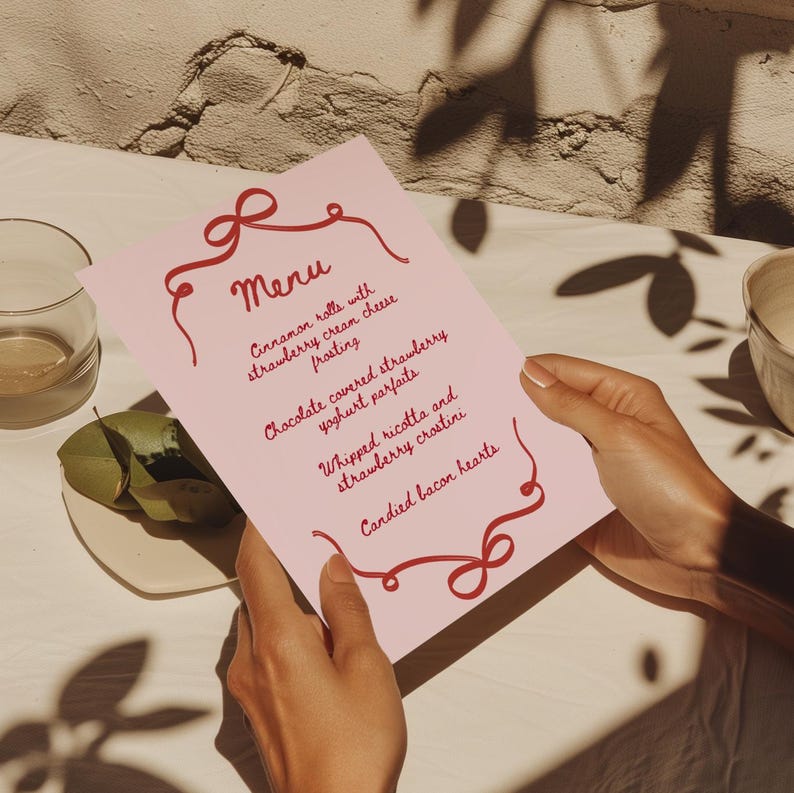 Menu
Cinnamon rolls with
strawberry cream cheese
frosting
Chocolate covered strawberry
yoghurt parfaits
Whipped ricotta and
strawberry crostini
Candied bacon hearts